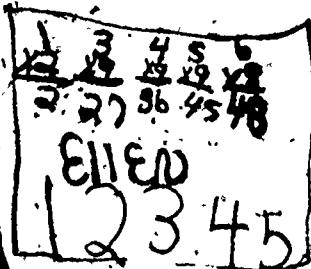 1 3 4 5 6
x2 x9 x9 x9 x8
2 27 36 45 48
Ellen
1 2 3 4 5